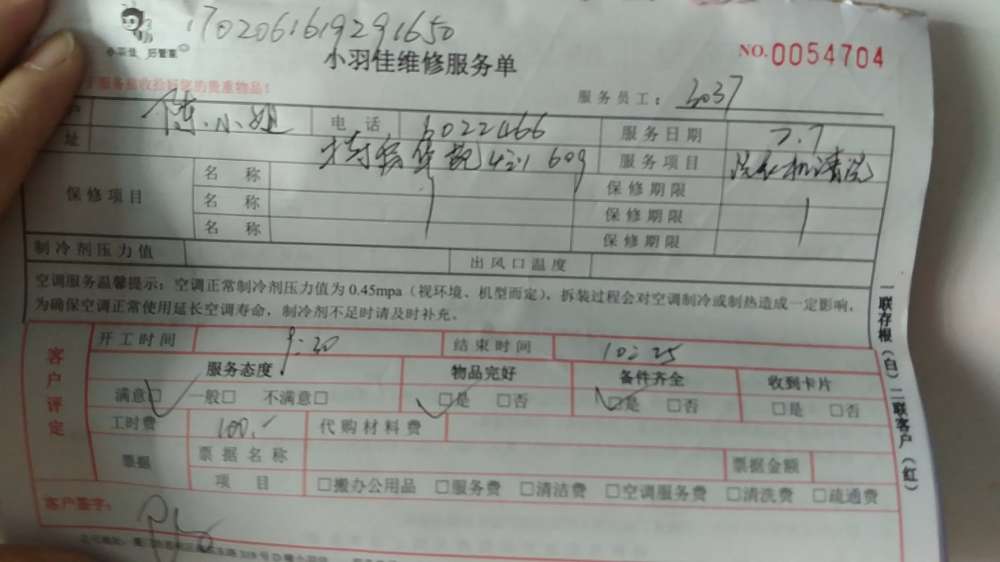 1702061619291650
小羽佳 好管家
小羽佳维修服务单
NO.0054704
服务员工: 3037
陈小姐 电话 6022466 服务日期 7.7
址 609 服务项目 洗衣机清洗
保修项目 名称 保修期限
名称 保修期限
名称 保修期限
制冷剂压力值 出风口温度
空调服务温馨提示：空调正常制冷剂压力值为 0.45mpa（视环境、机型而定），拆装过程会对空调制冷或制热造成一定影响，
为确保空调正常使用延长空调寿命，制冷剂不足时请及时补充。
一联存根（白）二联客户（红）
客户评定
开工时间 9:30 结束时间 10:25
服务态度 物品完好 备件齐全 收到卡片
满意□ 一般□ 不满意□ □是 □否 □是 □否 □是 □否
工时费 100.- 代购材料费
票据 票据名称 票据金额
项目 □搬办公用品 □服务费 □清洁费 □空调服务费 □清洗费 □疏通费
客户签字：